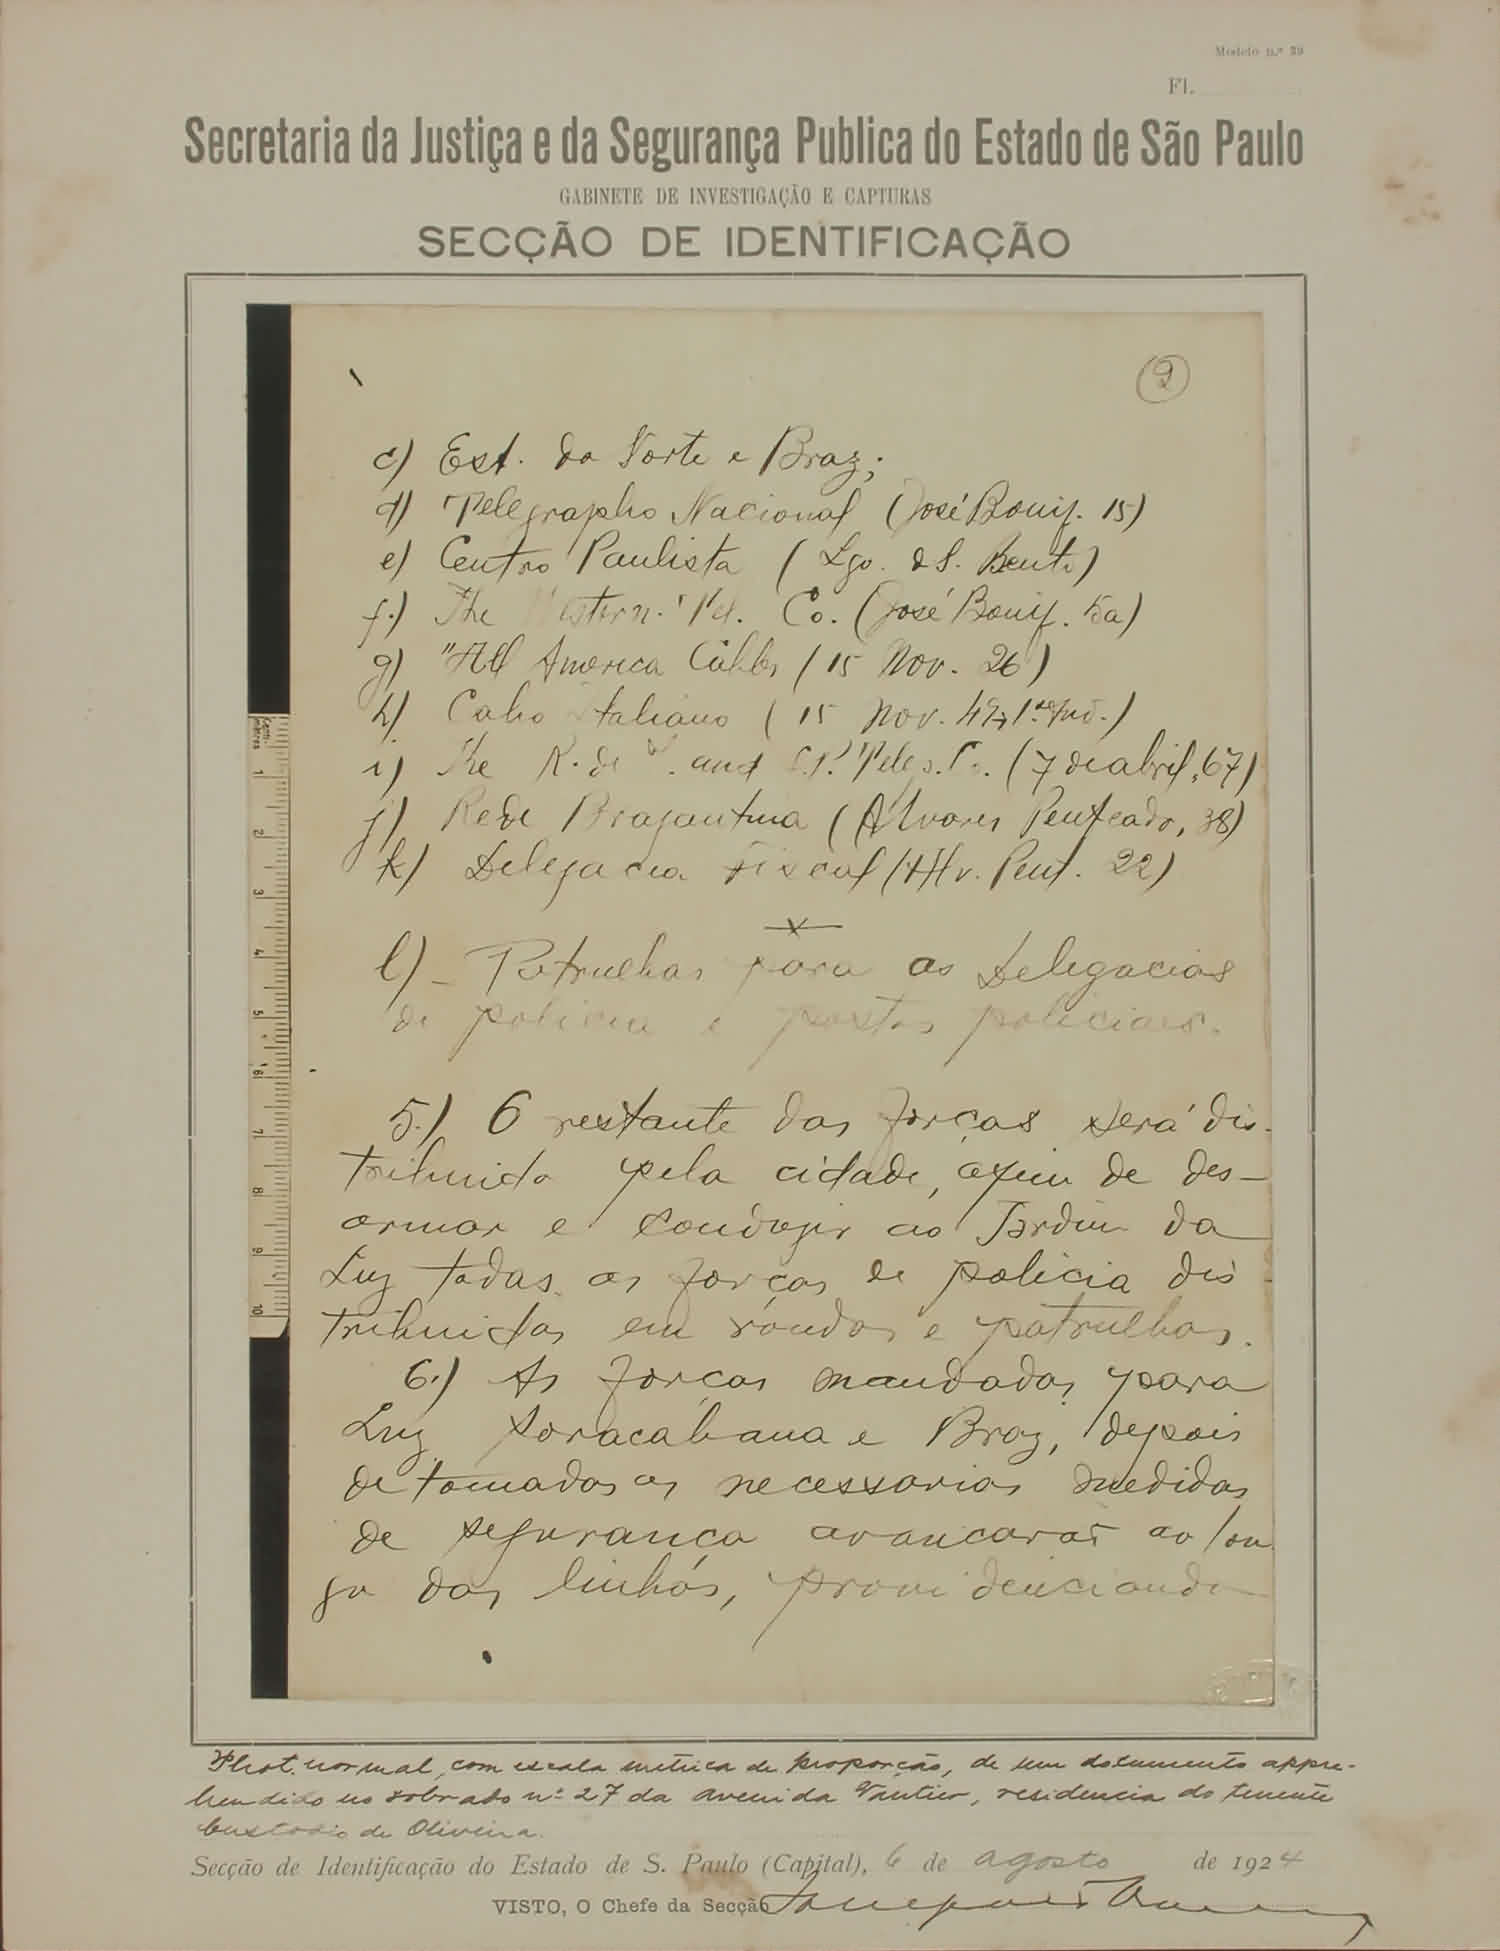 Modelo n.º 39
Fl.
Secretaria da Justiça e da Segurança Publica do Estado de São Paulo
GABINETE DE INVESTIGAÇÃO E CAPTURAS
SECÇÃO DE IDENTIFICAÇÃO
2
c) Est. do Norte e Braz;
d) Telegrapho Nacional (José Bonif. 15)
e) Centro Paulista (Lgo. de S. Bento)
f.) The Western Tel. Co. (José Bonif. 5a)
g) "All America Cables (15 Nov. 26)
h) Cabo Italiano (15 Nov.
i) The R. de and S.P. Teleg. Co. (7 de abril, 67)
j) Rede Bragantina (Alvares Penteado, 38)
k) Delegacia Fiscal (Alv. Pent. 22)
l) - Patrulhas para as Delegacias
de policia e postos policiais.
Centi-
metros
1
2
3
4
5
6
7
8
9
10
5.) O restante das forças será dis-
tribuido pela cidade, afim de des-
armar e conduzir ao Jardim da
Luz todas as forças de policia dis
tribuidas em rondas e patrulhas.
6.) As forças mandadas para
Luz, Sorocabana e Braz, depois
de tomadas as necessarias medidas
de segurança avançarão ao lon
go das linhas, providenciando
Phot. normal, com escala metrica de proporção, de um documento appre-
hendido no sobrado nº 27 da avenida Vautier, residencia do tenente
Custodio de Oliveira.
Secção de Identificação do Estado de S. Paulo (Capital), 6 de agosto de 1924
VISTO, O Chefe da Secção